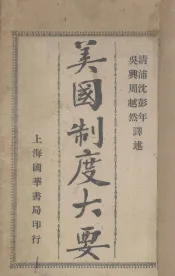 清浦沈彭年
吳興周越然譯述
美國制度大要
上海國華書局印行